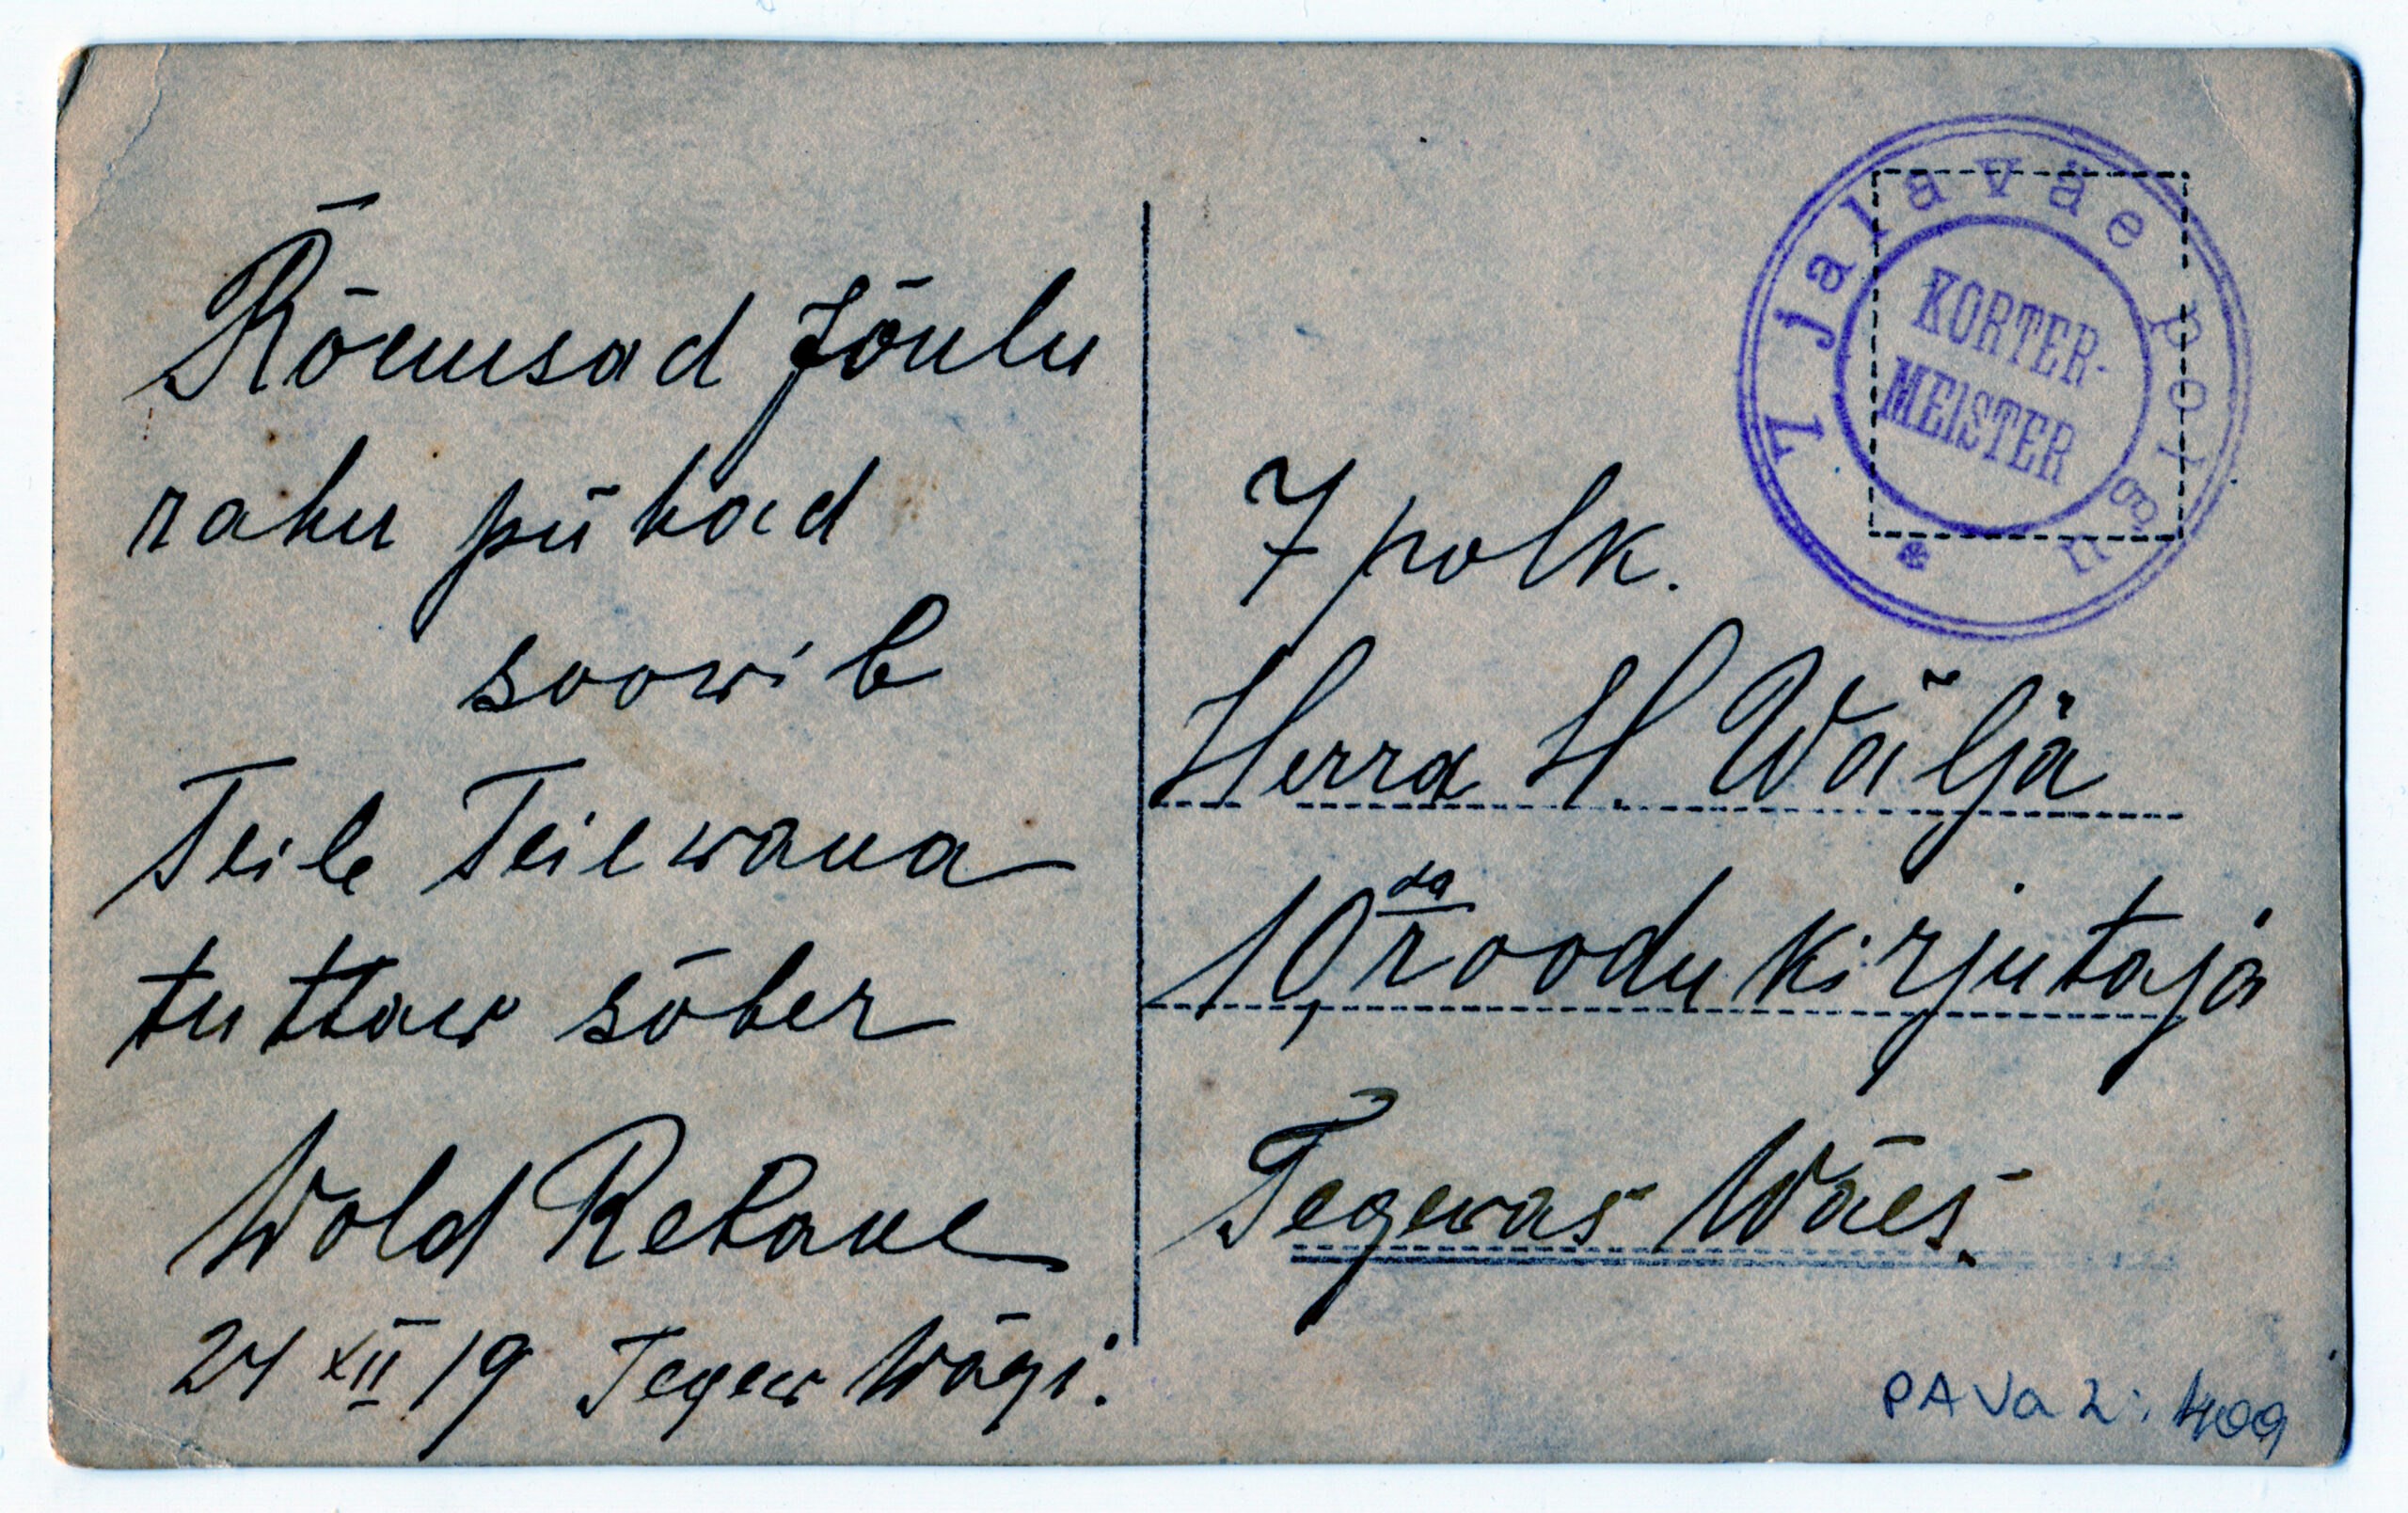 Rõemsad Jõulu
rahu pühad
soowib
Teile Teie wana
tuttaw sõber
Wold Rebane
24 XII 19 Tegew Wägi.
7 jalaväe polgu
KORTER-
MEISTER
7 polk.
Herra H. Wälja
10, da roodu kirjutaja
Tegewas Wäes.
PAVa 2: 409